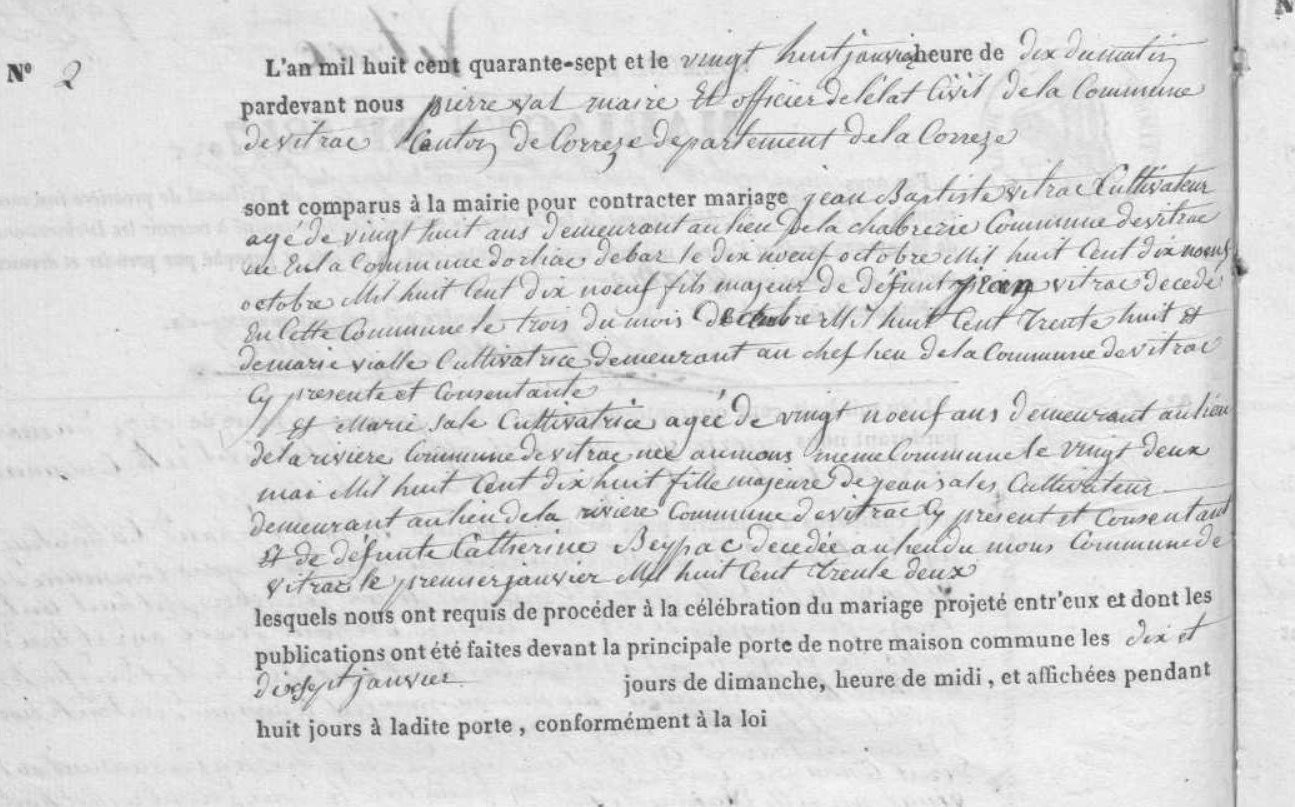 N° 2
L'an mil huit cent quarante-sept et le vingt huit janvier heure de dix du matin
pardevant nous pierre val maire Et officier de l'état Civil de la Commune
de vitrac Canton de Correze departement de la Correze
sont comparus à la mairie pour contracter mariage jean Baptiste vitrac Cultivateur
age de vingt huit ans demeurant au lieu de la chabrerie Commune de vitrac
ne En la Commune dorliac debar le dix noeuf octobre Mil huit Cent dix noeuf
octobre Mil huit Cent dix noeuf fils majeur de défunt jean vitrac decede
En Cette Commune le trois du mois doctobre Mil huit Cent trente huit Et
de marie vialle Cultivatrice demeurant au chef lieu de la Commune de vitrac
Cy presente et Consentante
Et Marie sale Cultivatrice agée de vingt noeuf ans demeurant au lieu
de la riviere Commune de vitrac neé au mons meme Commune le vingt deux
mai Mil huit Cent dix huit fille majeure de jean sales Cultivateur
demeurant au lieu de la riviere Commune de vitrac Cy présent et Consentant
Et de défunte Catherine decedée au lieu du mons Commune de
vitrac le premier janvier Mil huit Cent trente deux
lesquels nous ont requis de procéder à la célébration du mariage projeté entr'eux et dont les
publications ont été faites devant la principale porte de notre maison commune les dix et
dixsept janvier jours de dimanche, heure de midi, et affichées pendant
huit jours à ladite porte, conformément à la loi